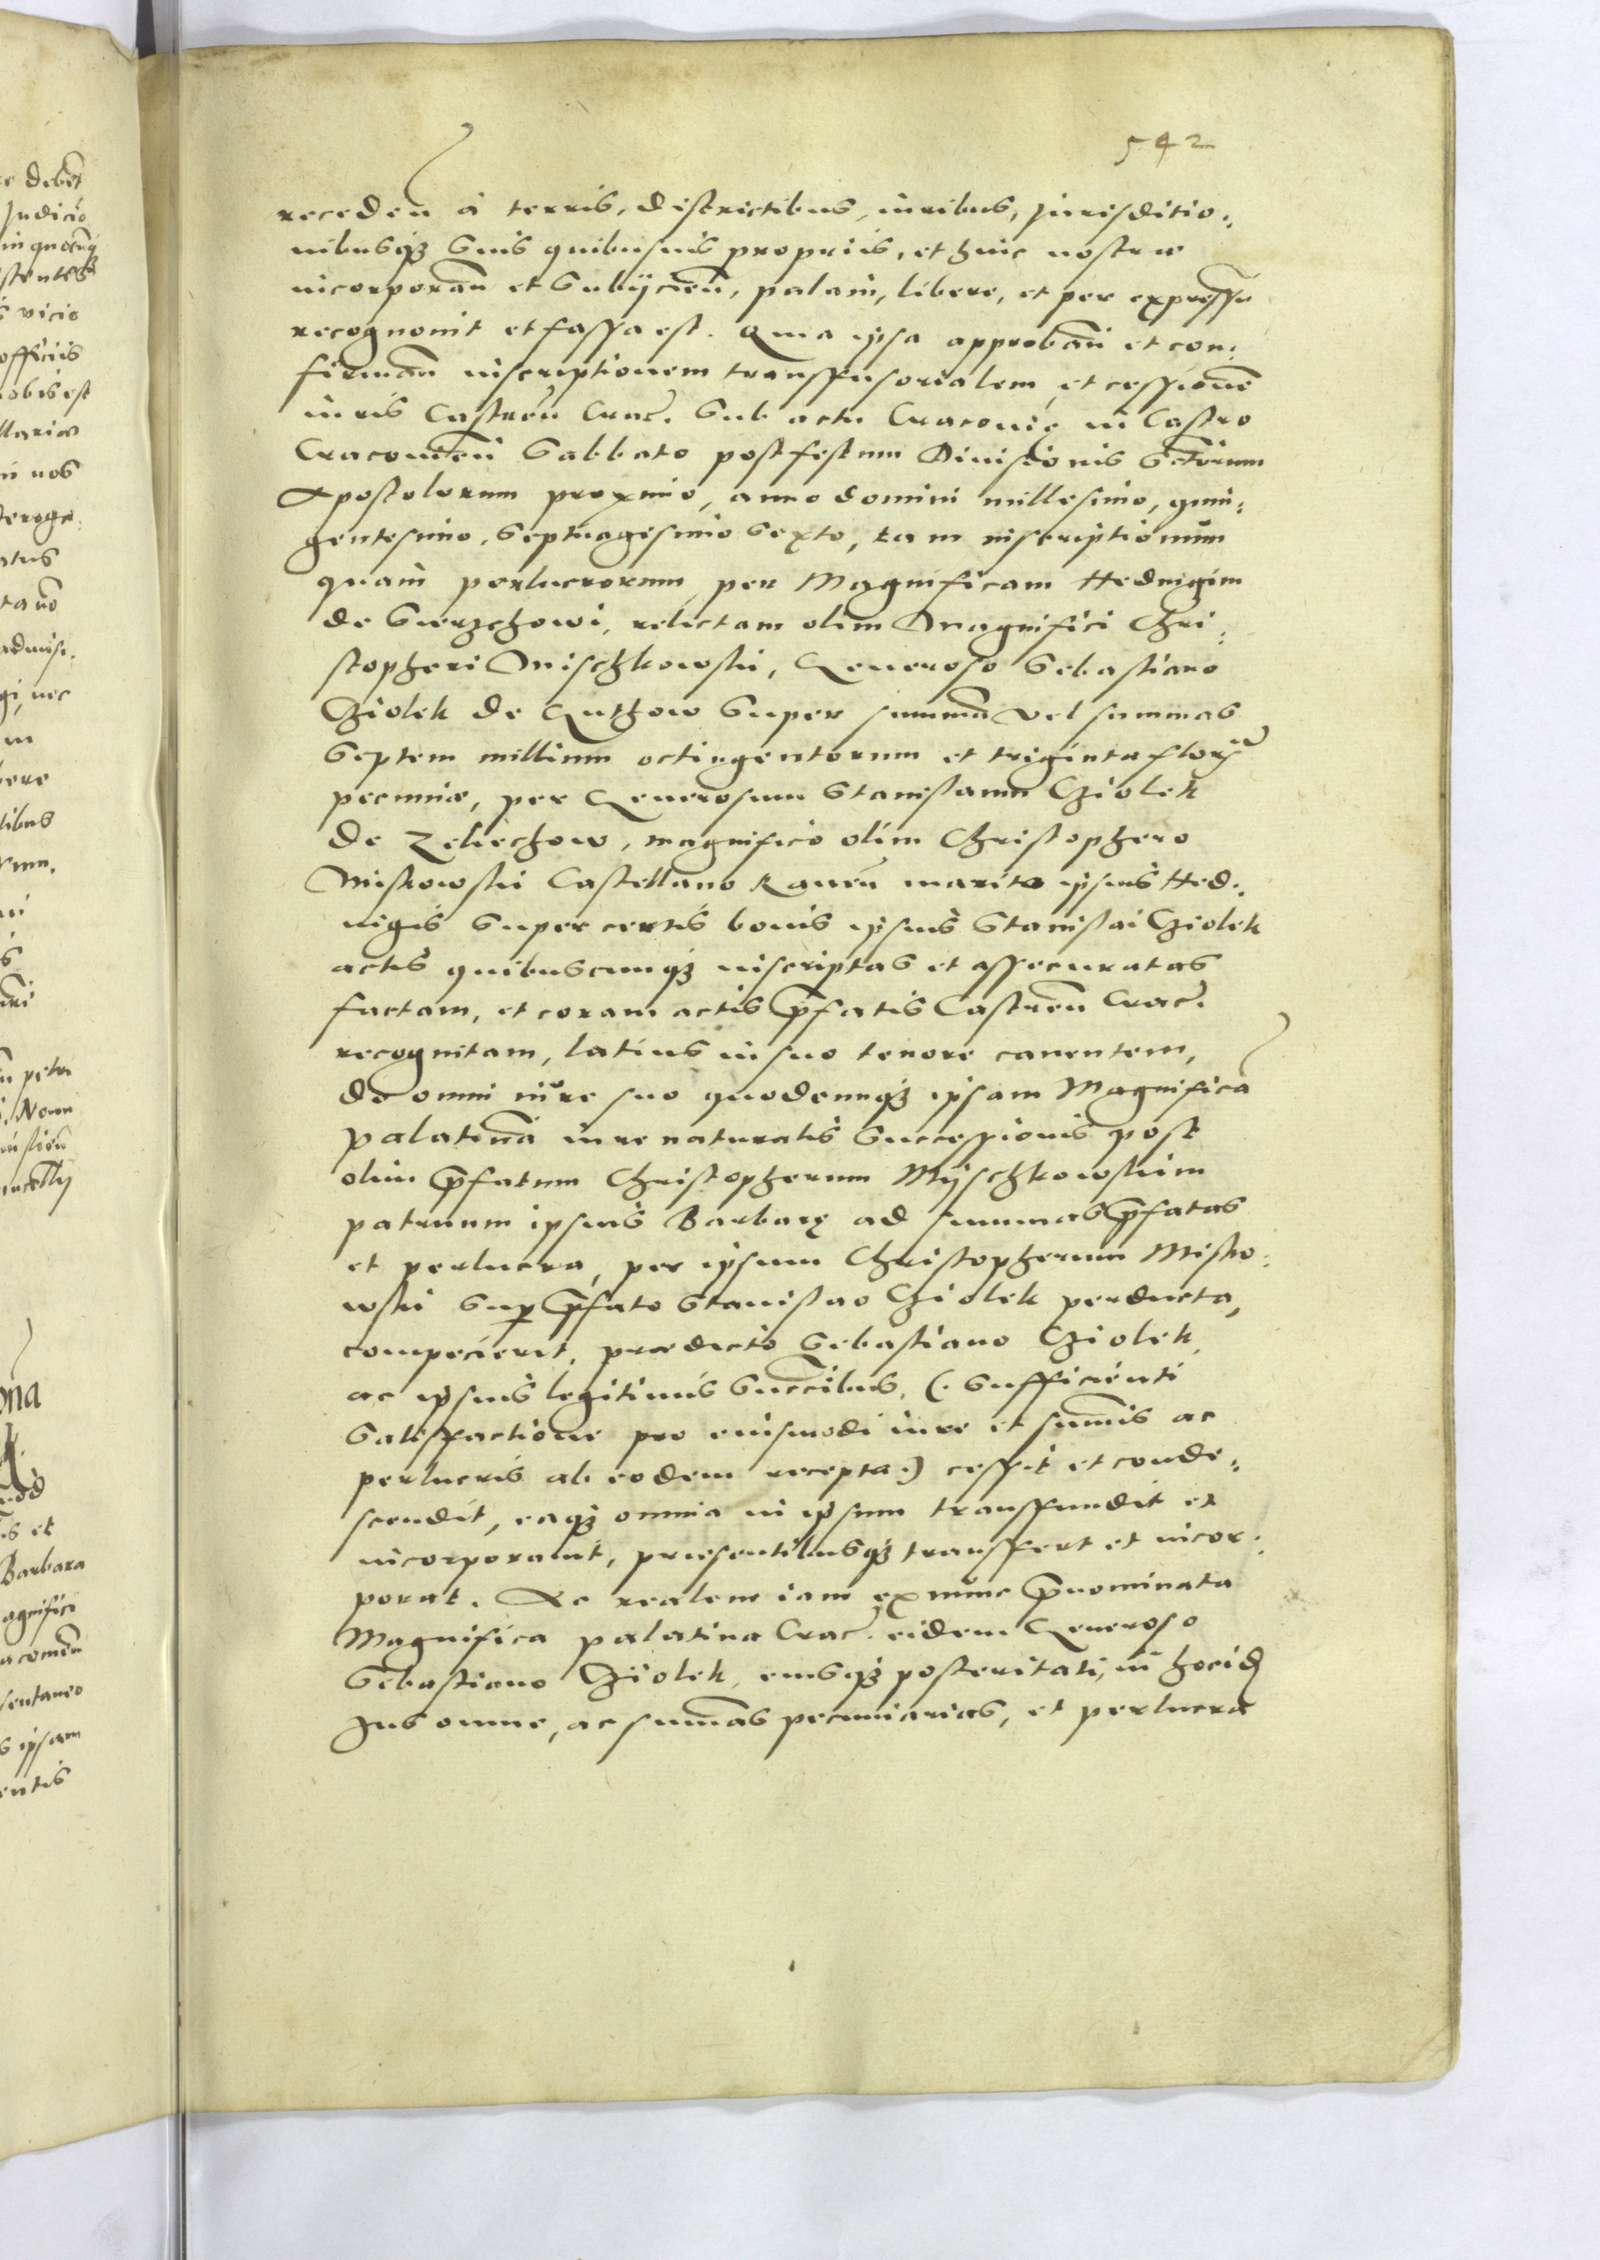 542
receden̄ à terris, districtibus, iuribus, Jurisditio:
nibusq3 suis quibusuis propriis, et huic nostræ
incorporan̄ et subijcien̄, palam, libere, et per expressu
recognouit et fassa est. Quia ipsa approban̄ et con:
firman̄ inscriptionem transfusorialem, et cessionē
iuris Castren̄ Crac. sub actu Cracouię in Castro
Cracouien̄ Sabbato post festum Diuisionis Sctorum
Apostolorum proximo, anno domini millesimo, quin:
gentesimo, septuagesimo sexto, tam inscriptionum
quam perlucrorum per Magnificam Heduigim
de Sierzchowi, relictam olim Magnifici Chri:
stopheri Mischkowski, Generoso Sebastiano
Cziolek de super summā vel summas
septem millium octingentorum et triginta flor
pecuniæ, per Generosum Stanislaum Cziolek
de Zeliechow, magnifico olim Christophero
Miskowski Castellano marito ipsius Hed:
uigis super certis bonis ipsius Stanislai Cziolek
actis quibuscunq3 inscriptas et assecuratas
factam, et coram actis p̄fatis Castren̄ Crac.
recognitam, latius in suo tenore canentem,
de omni iure suo quodcunq3 ipsam Magnificā
Palatinā iure naturalis successionis post
olim p̄fatum Christopherum Mijschkowskim
patruum ipsius Barbarę ad summas p̄fatas
et perlucra, per ipsum Christopherum Misko:
wski sup p̄fato Stanislao Cziolek perducta,
compecierit, prædicto Sebastiano Cziolek,
ac ipsius legitimis succībus, (. sufficienti
satisfactione pro eiusmodi iure et summis ac
perlucris ab eodem recepta.) cessit et conde:
scendit, eaq3 omnia in ipsum transfundit et
incorporauit, præsentibusq3 transffert et incor:
porat. Ac realem iam ex nunc p̄nominata
Magnifica palatina Crac. eidem Generoso
Sebastiano Cziolek, eiusq3 posteritati, in hocid
Jus omne, ac summas pecuniarias, et perlucra